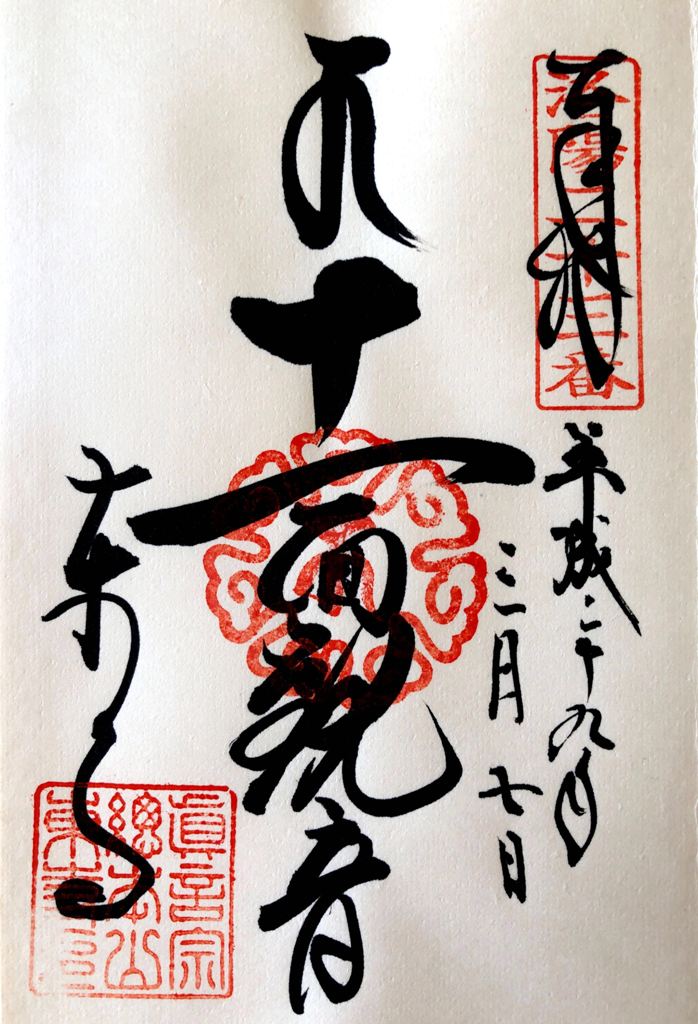 奉拝
洛陽二十三番
平成二十九年
三月七日
十一面観音
東寺
眞言宗
總本山
東寺印